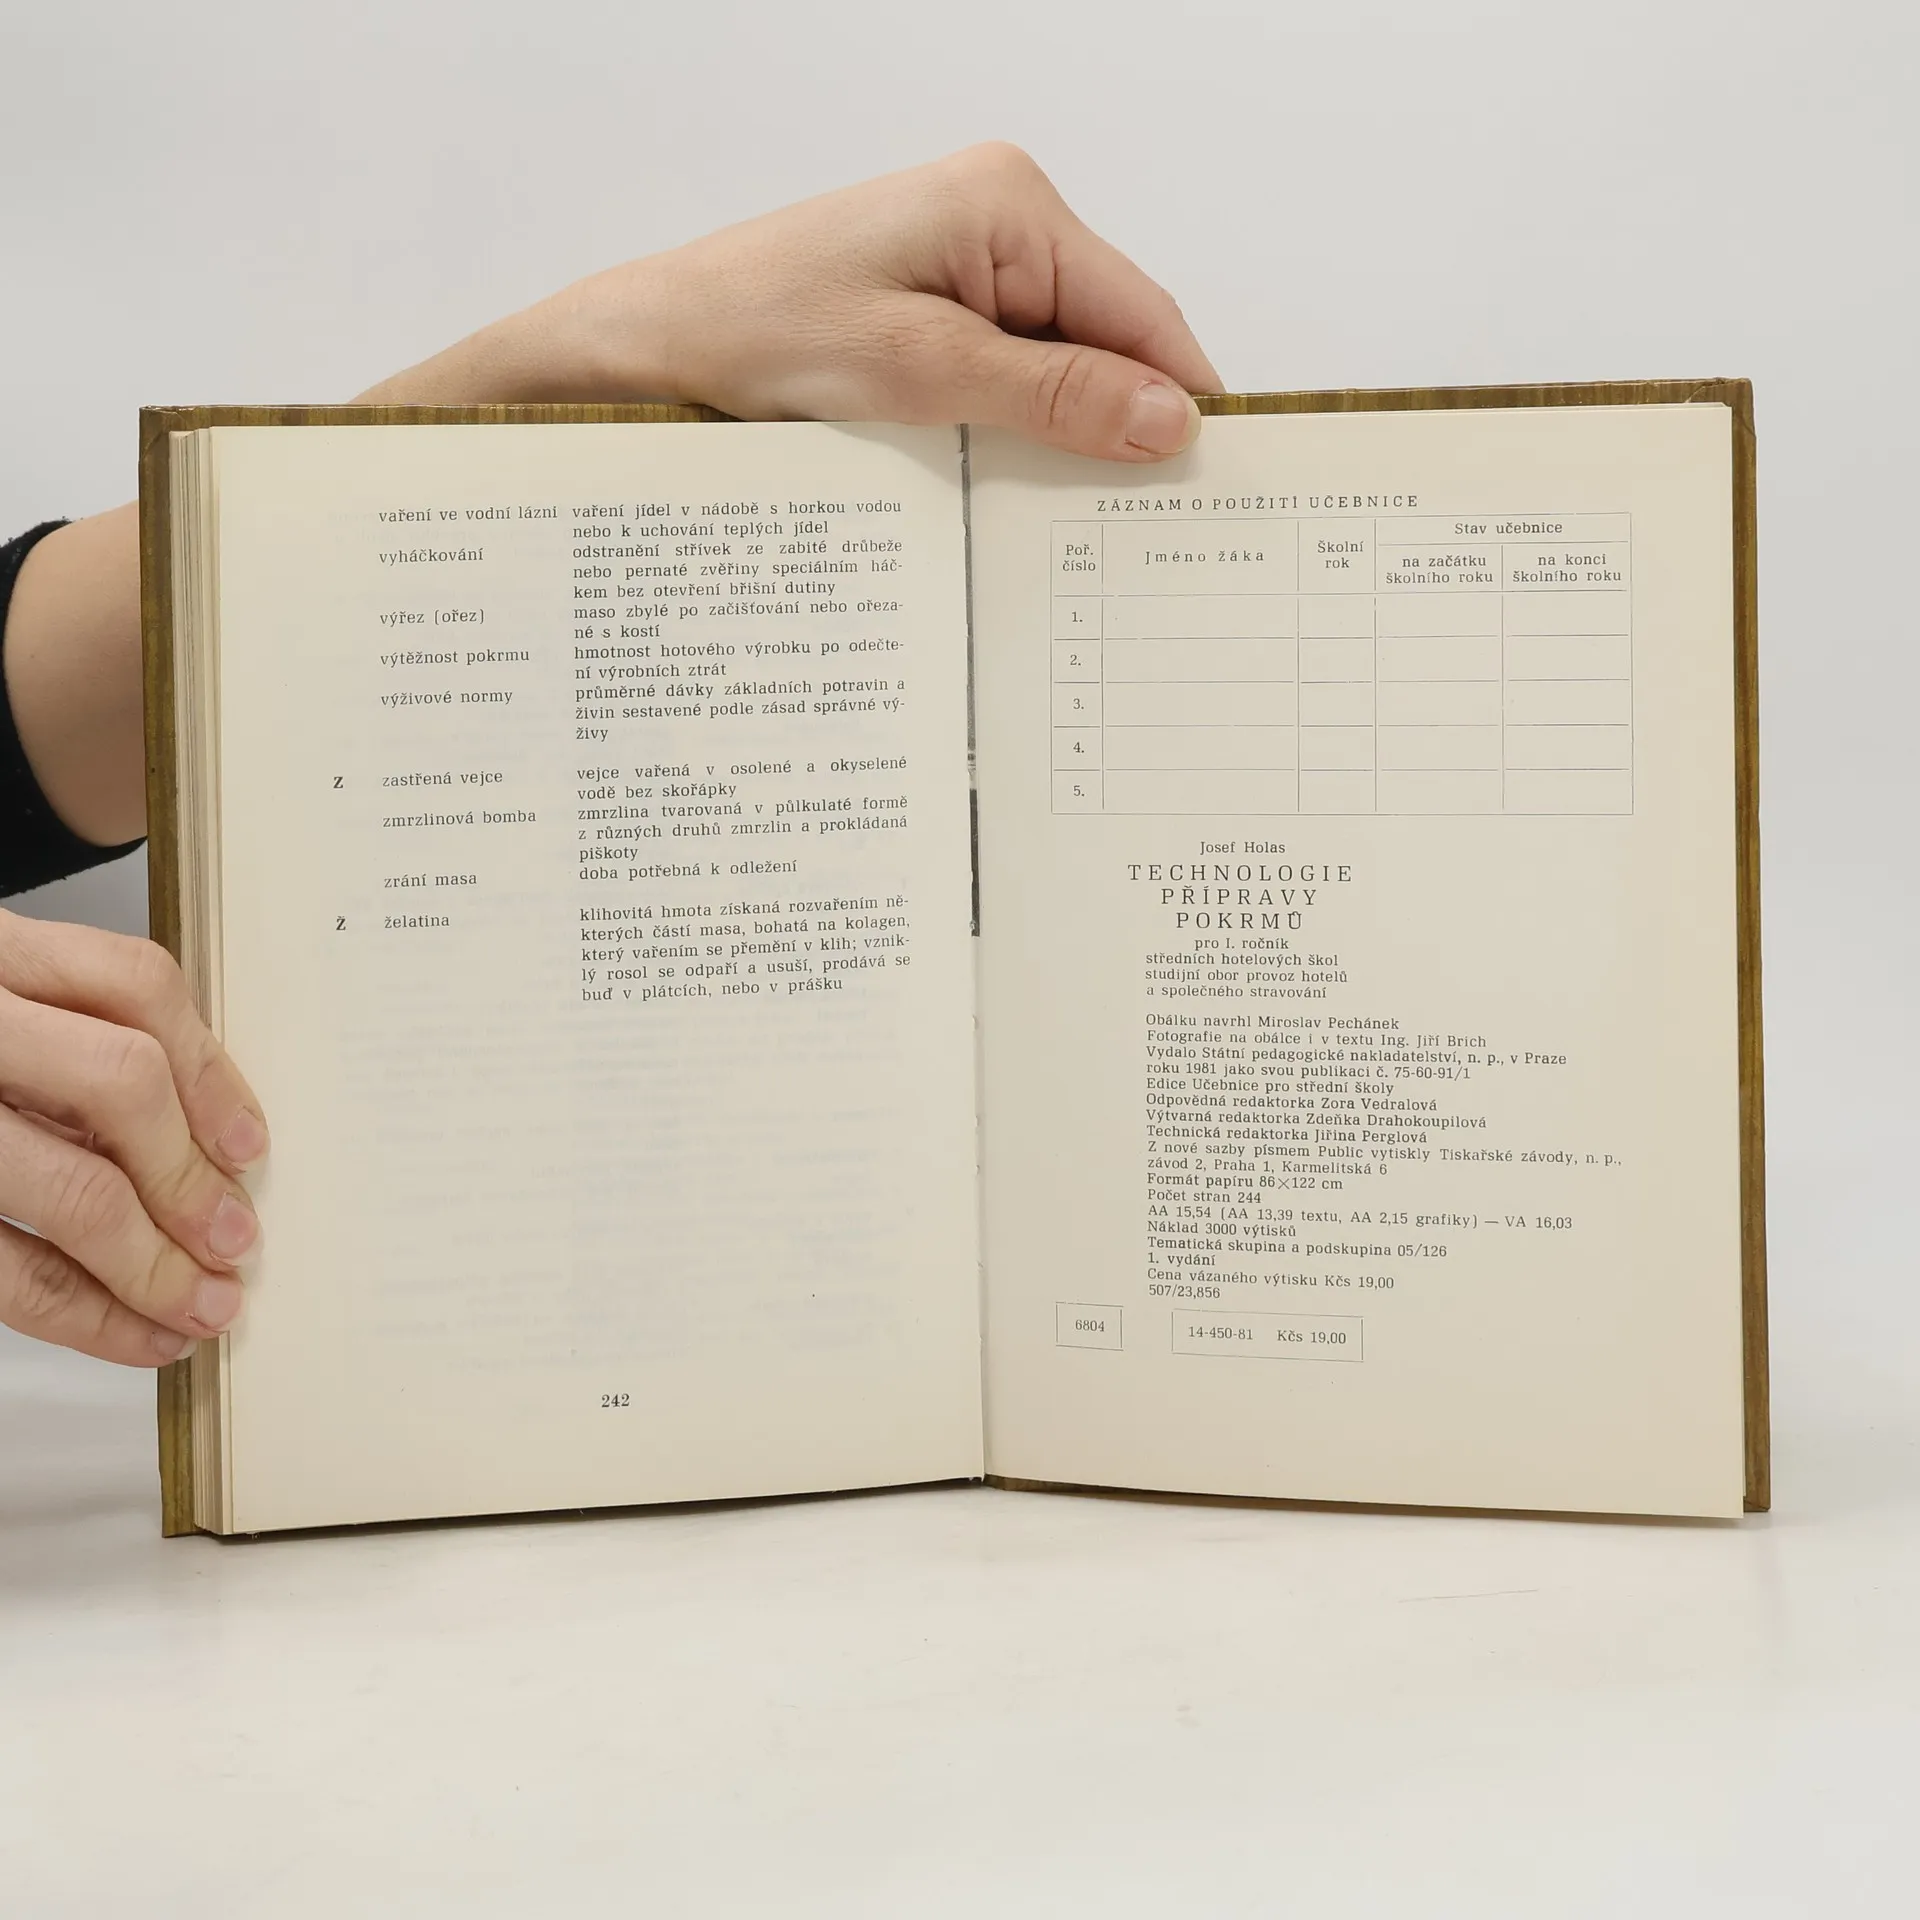 vaření ve vodní lázni vaření jídel v nádobě s horkou vodou
nebo k uchování teplých jídel
vyháčkování odstranění střívek ze zabité drůbeže
nebo pernaté zvěřiny speciálním háč-
kem bez otevření břišní dutiny
výřez (ořez) maso zbylé po začišťování nebo ořeza-
né s kostí
výtěžnost pokrmu hmotnost hotového výrobku po odečte-
ní výrobních ztrát
výživové normy průměrné dávky základních potravin a
živin sestavené podle zásad správné vý-
živy
Z zastřená vejce vejce vařená v osolené a okyselené
vodě bez skořápky
zmrzlinová bomba zmrzlina tvarovaná v půlkulaté formě
z různých druhů zmrzlin a prokládaná
piškoty
zrání masa doba potřebná k odležení
Ž želatina klihovitá hmota získaná rozvařením ně-
kterých částí masa, bohatá na kolagen,
který vařením se přemění v klih; vznik-
lý rosol se odpaří a usuší, prodává se
buď v plátcích, nebo v prášku
242
ZÁZNAM O POUŽITÍ UČEBNICE
Poř. číslo Jméno žáka Školní rok Stav učebnice
na začátku školního roku na konci školního roku
1.
2.
3.
4.
5.
Josef Holas
TECHNOLOGIE
PŘÍPRAVY
POKRMŮ
pro I. ročník
středních hotelových škol
studijní obor provoz hotelů
a společného stravování
Obálku navrhl Miroslav Pechánek
Fotografie na obálce i v textu Ing. Jiří Brich
Vydalo Státní pedagogické nakladatelství, n. p., v Praze
roku 1981 jako svou publikaci č. 75-60-91/1
Edice Učebnice pro střední školy
Odpovědná redaktorka Zora Vedralová
Výtvarná redaktorka Zdeňka Drahokoupilová
Technická redaktorka Jiřina Perglová
Z nové sazby písmem Public vytiskly Tiskařské závody, n. p.,
závod 2, Praha 1, Karmelitská 6
Formát papíru 86×122 cm
Počet stran 244
AA 15,54 (AA 13,39 textu, AA 2,15 grafiky) — VA 16,03
Náklad 3000 výtisků
Tematická skupina a podskupina 05/126
1. vydání
Cena vázaného výtisku Kčs 19,00
507/23,856
6804 14-450-81 Kčs 19,00